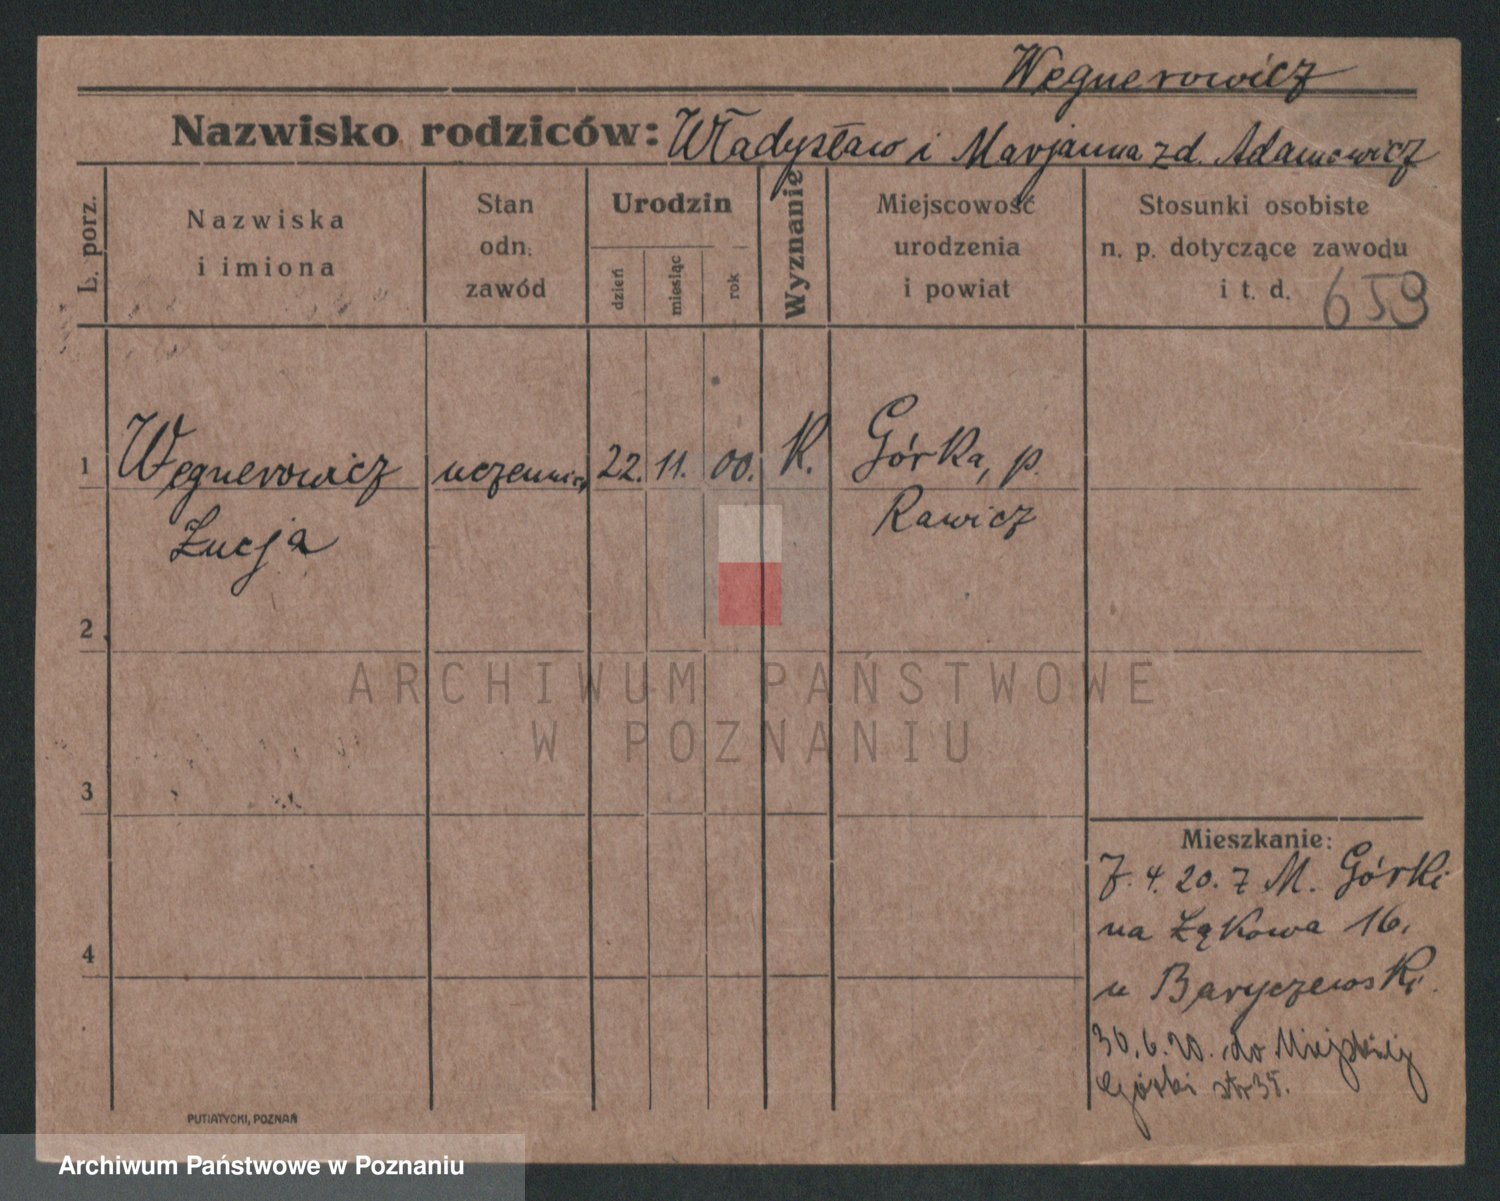 Węgnerowicz
Nazwisko rodziców: Władysław i Marjanna zd. Adamowicz
L. porz.
Nazwiska
i imiona
Stan
odn.
zawód
Urodzin
dzień
miesiąc
rok
Wyznanie
Miejscowość
urodzenia
i powiat
Stosunki osobiste
n. p. dotyczące zawodu
i t. d.
659
1
Węgnerowicz
Łucja
uczennica
22. 11. 00.
K.
Górka, p.
Rawicz
2
3
4
Mieszkanie:
7. 4. 20. z M. Górki
na Łąkowa 16.
u Baryczewski.
30. 6. 20. do Miejskiej
Górki str 35.
PUTIATYCKI, POZNAŃ
ARCHIWUM PAŃSTWOWE
W POZNANIU
Archiwum Państwowe w Poznaniu